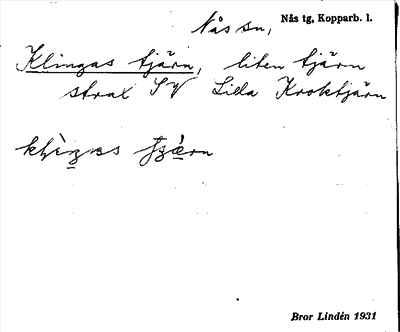 Nås sn, Nås tg, Kopparb. l.
Klingas tjärn, liten tjärn
strax SV Lilla Kroktjärn
Bror Lindén 1931